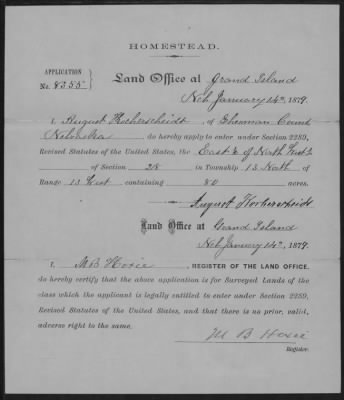 HOMESTEAD.
APPLICATION
No. 8355
Land Office at Grand Island
Neb January 14th, 1879.
I, August of Sherman County
Nebraska do hereby apply to enter under Section 2289,
Revised Statutes of the United States, the East ½ of North West ¼
of Section 28 in Township 13 North of
Range 13 West containing 80 acres.
August
Land Office at Grand Island
Neb January 14th, 1879.
I, M.B. Hoxie, REGISTER OF THE LAND OFFICE,
do hereby certify that the above application is for Surveyed Lands of the
class which the applicant is legally entitled to enter under Section 2289,
Revised Statutes of the United States, and that there is no prior, valid,
adverse right to the same.
M B Hoxie
Register.